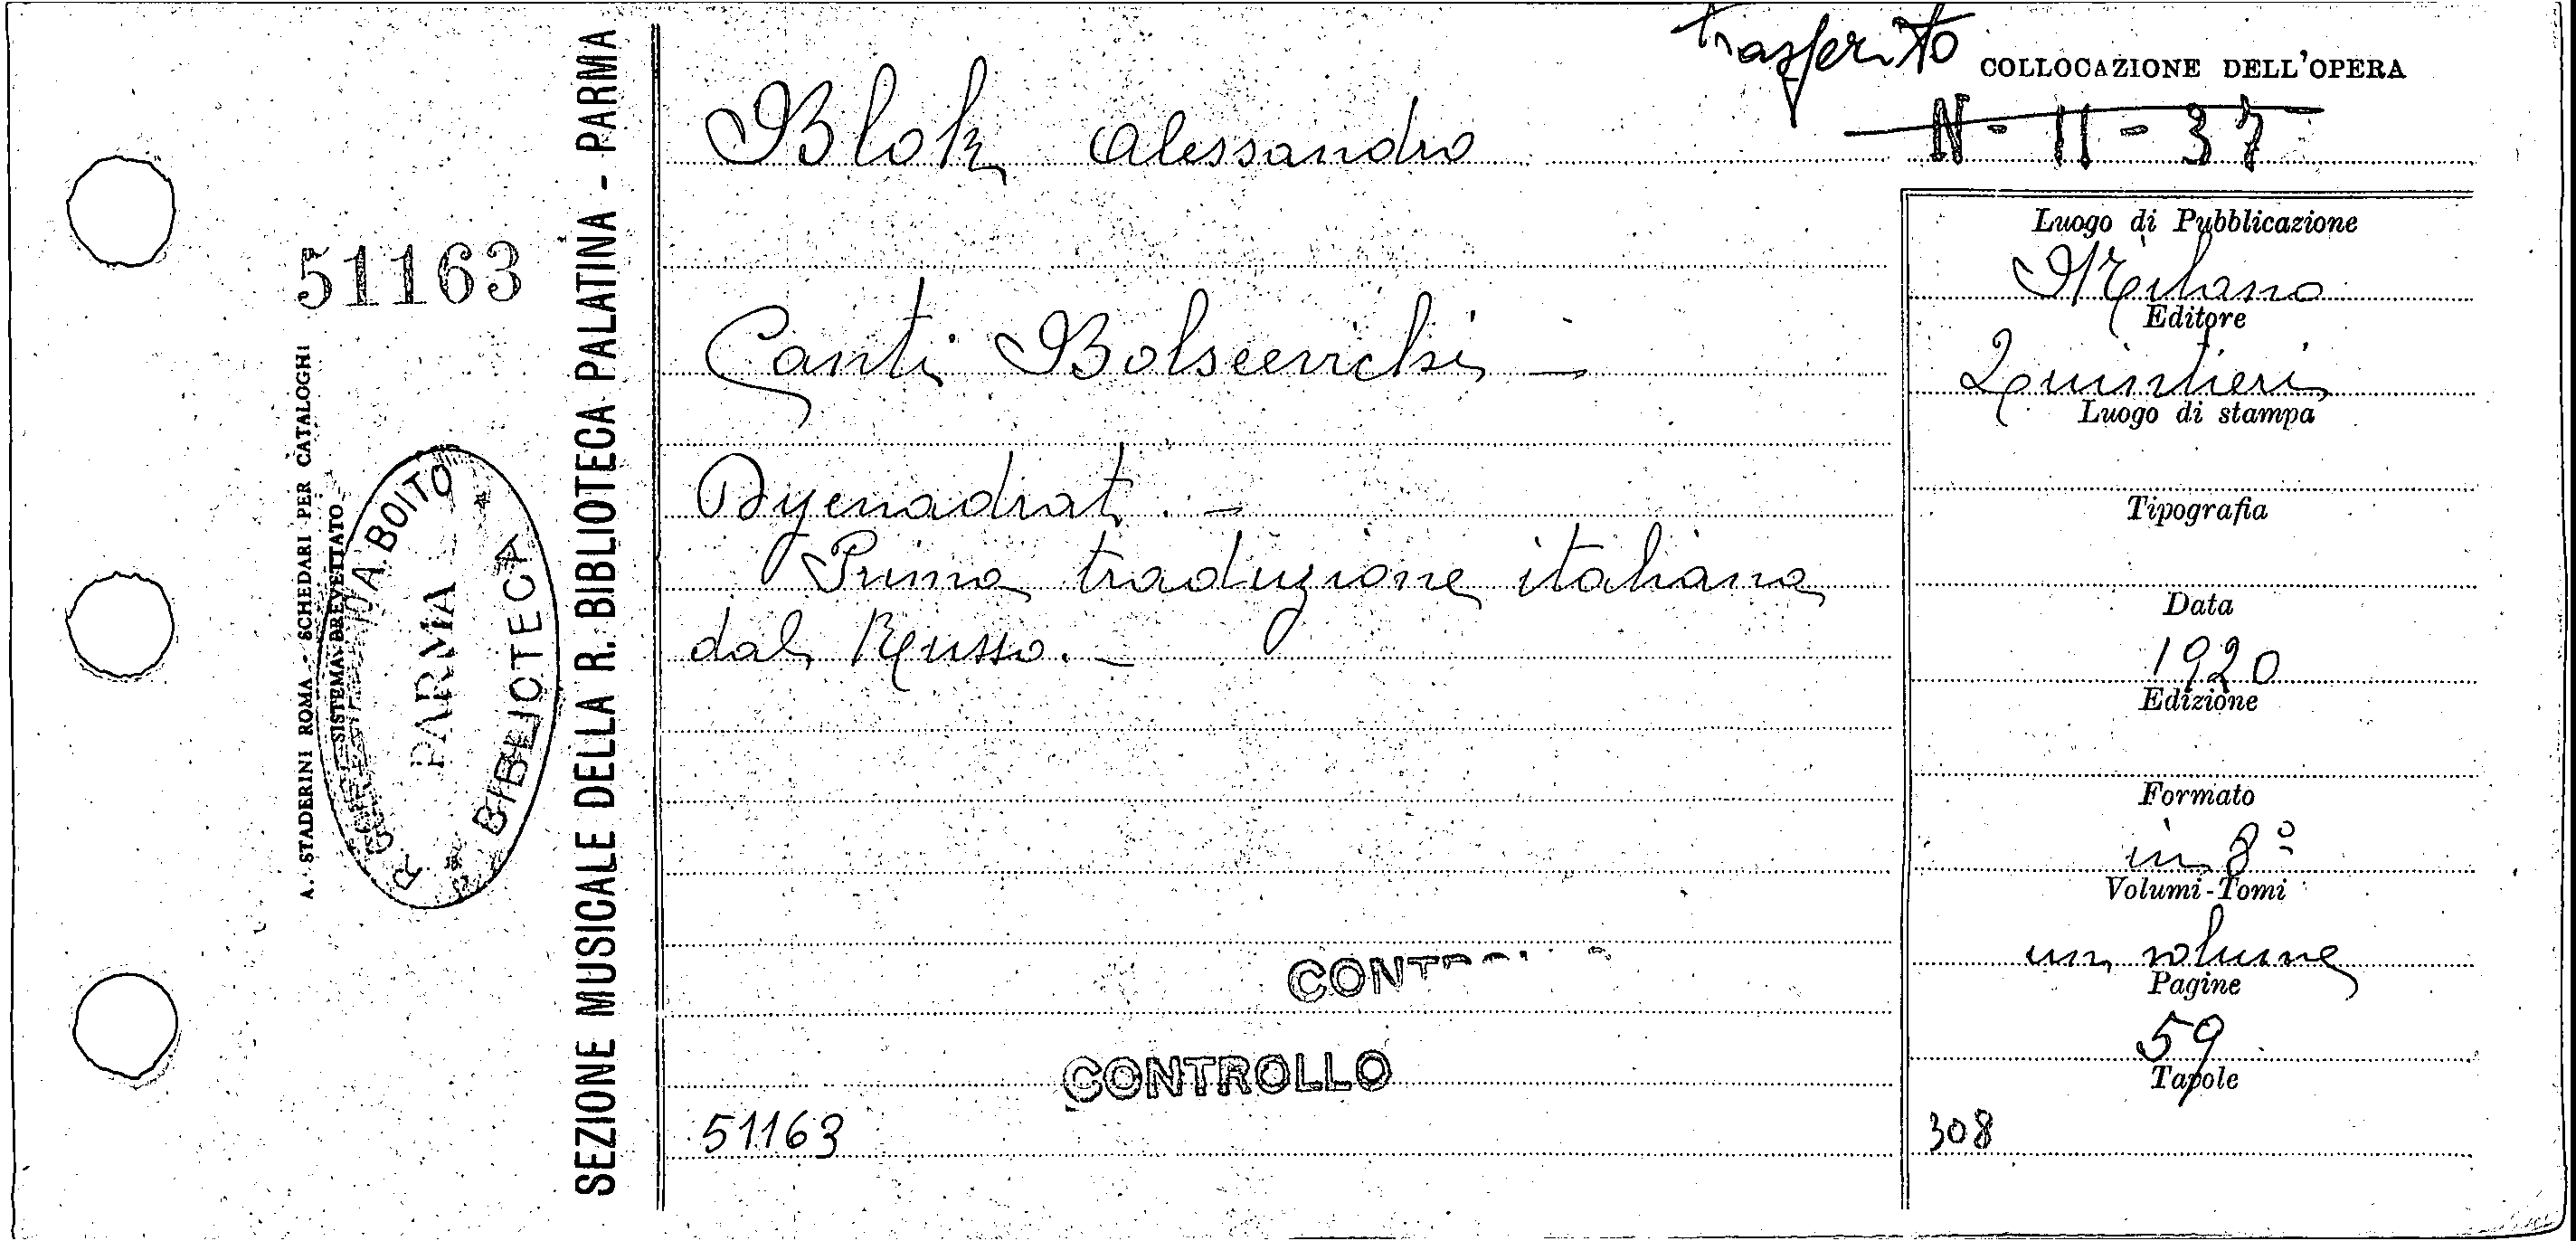 trasferito
COLLOCAZIONE DELL'OPERA
N - 11 - 37
Blok Alessandro
Canti Bolscevichi -
Dyenadrat . -
Prima traduzione italiana
dal Russo. -
CONTRO
CONTROLLO
51163
Luogo di Pubblicazione
Milano
Editore
Quintieri
Luogo di stampa
Tipografia
Data
1920
Edizione
Formato
in 8º
Volumi-Tomi
un volume
Pagine
59
Tavole
308
51163
A. STADERINI ROMA - SCHEDARI PER CATALOGHI
SISTEMA BREVETTATO
A. BOITO
PARMA
BIBLIOTECA
SEZIONE MUSICALE DELLA R. BIBLIOTECA PALATINA - PARMA